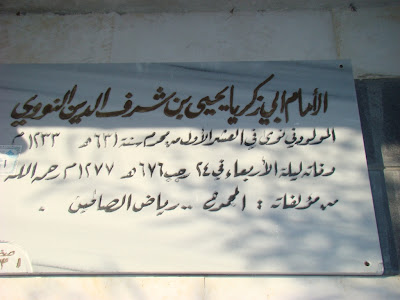 الأمام ابي زكريا يحيى بن شرف الدين النووي
المولود في نوى في العشر الأول من محرم سنة ٦٣١ هـ ١٢٣٣ م
وفاته ليلة الأربعاء في ٢٤ رجب ٦٧٦ هـ ١٢٧٧ م رحمه الله
من مؤلفاته : المجموع .. رياض الصالحين .